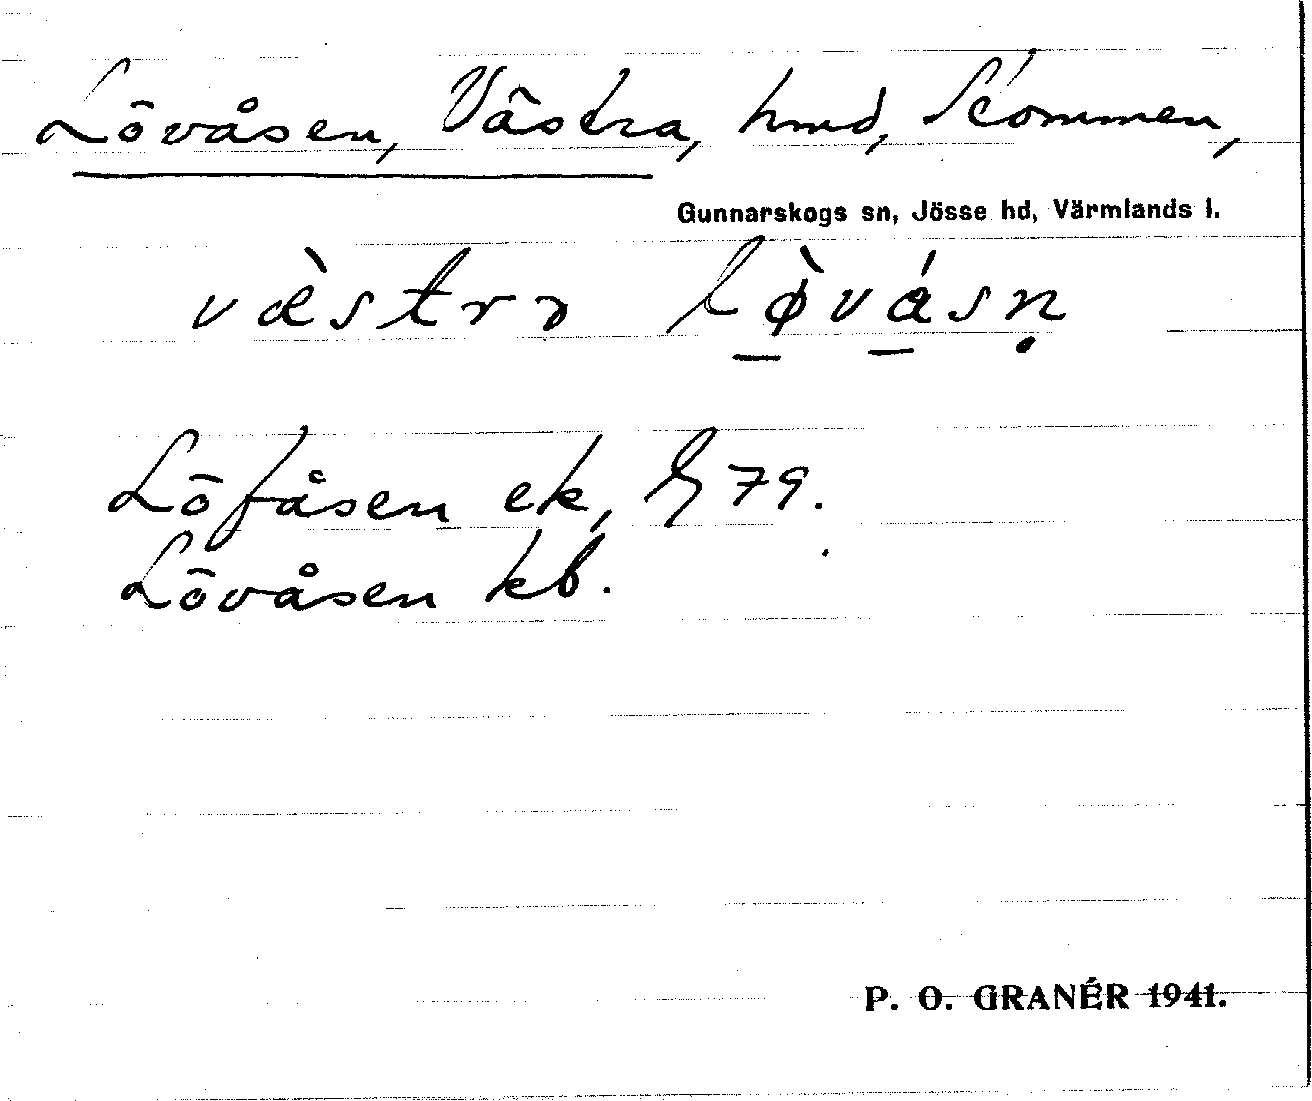 Lövåsen, Västra, hmd, Kommen,
Gunnarskogs sn, Jösse hd, Värmlands l.
væ̀strə lø̠̀vá̠sṇ
Löfåsen ek, 79.
Lövåsen kb.
P. O. GRANÉR 1941.